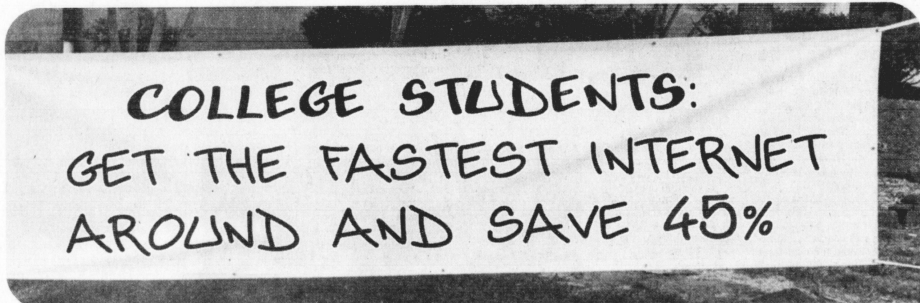 COLLEGE STUDENTS:
GET THE FASTEST INTERNET
AROUND AND SAVE 45%